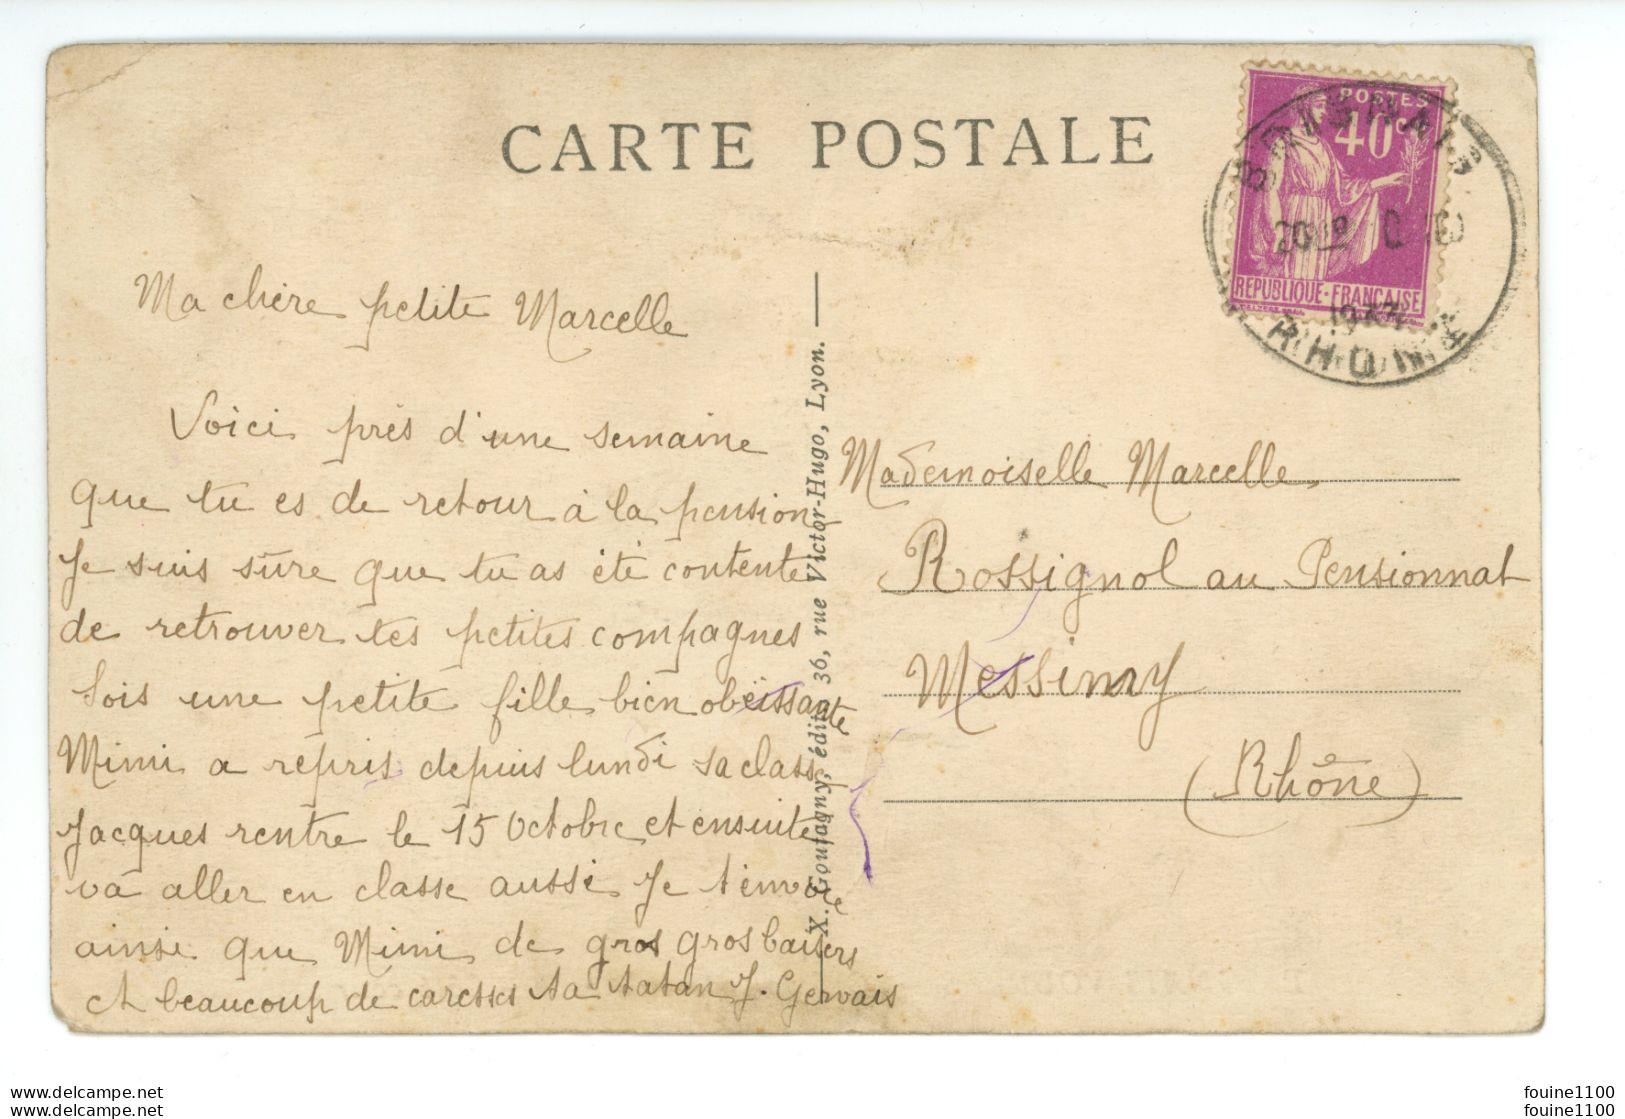 CARTE POSTALE
POSTES
40c
REPUBLIQUE-FRANÇAISE
RHONE
Ma chère petite Marcelle
Voici près d'une semaine
que tu es de retour à la pension
Je suis sûre que tu as été contente
de retrouver tes petites compagnes
Sois une petite fille bien obéissante
Mimi a repris depuis lundi sa classe
Jacques rentre le 15 Octobre et ensuite
va aller en classe aussi Je t'envoie
ainsi que Mimi de gros gros baisers
et beaucoup de caresses ta tatan J. Gervais
X. Goutagny, édit., 36, rue Victor-Hugo, Lyon.
Mademoiselle Marcelle
Rossignol au Pensionnat
Messimy
(Rhône)
www.delcampe.net
www.delcampe.net
fouine1100
fouine1100